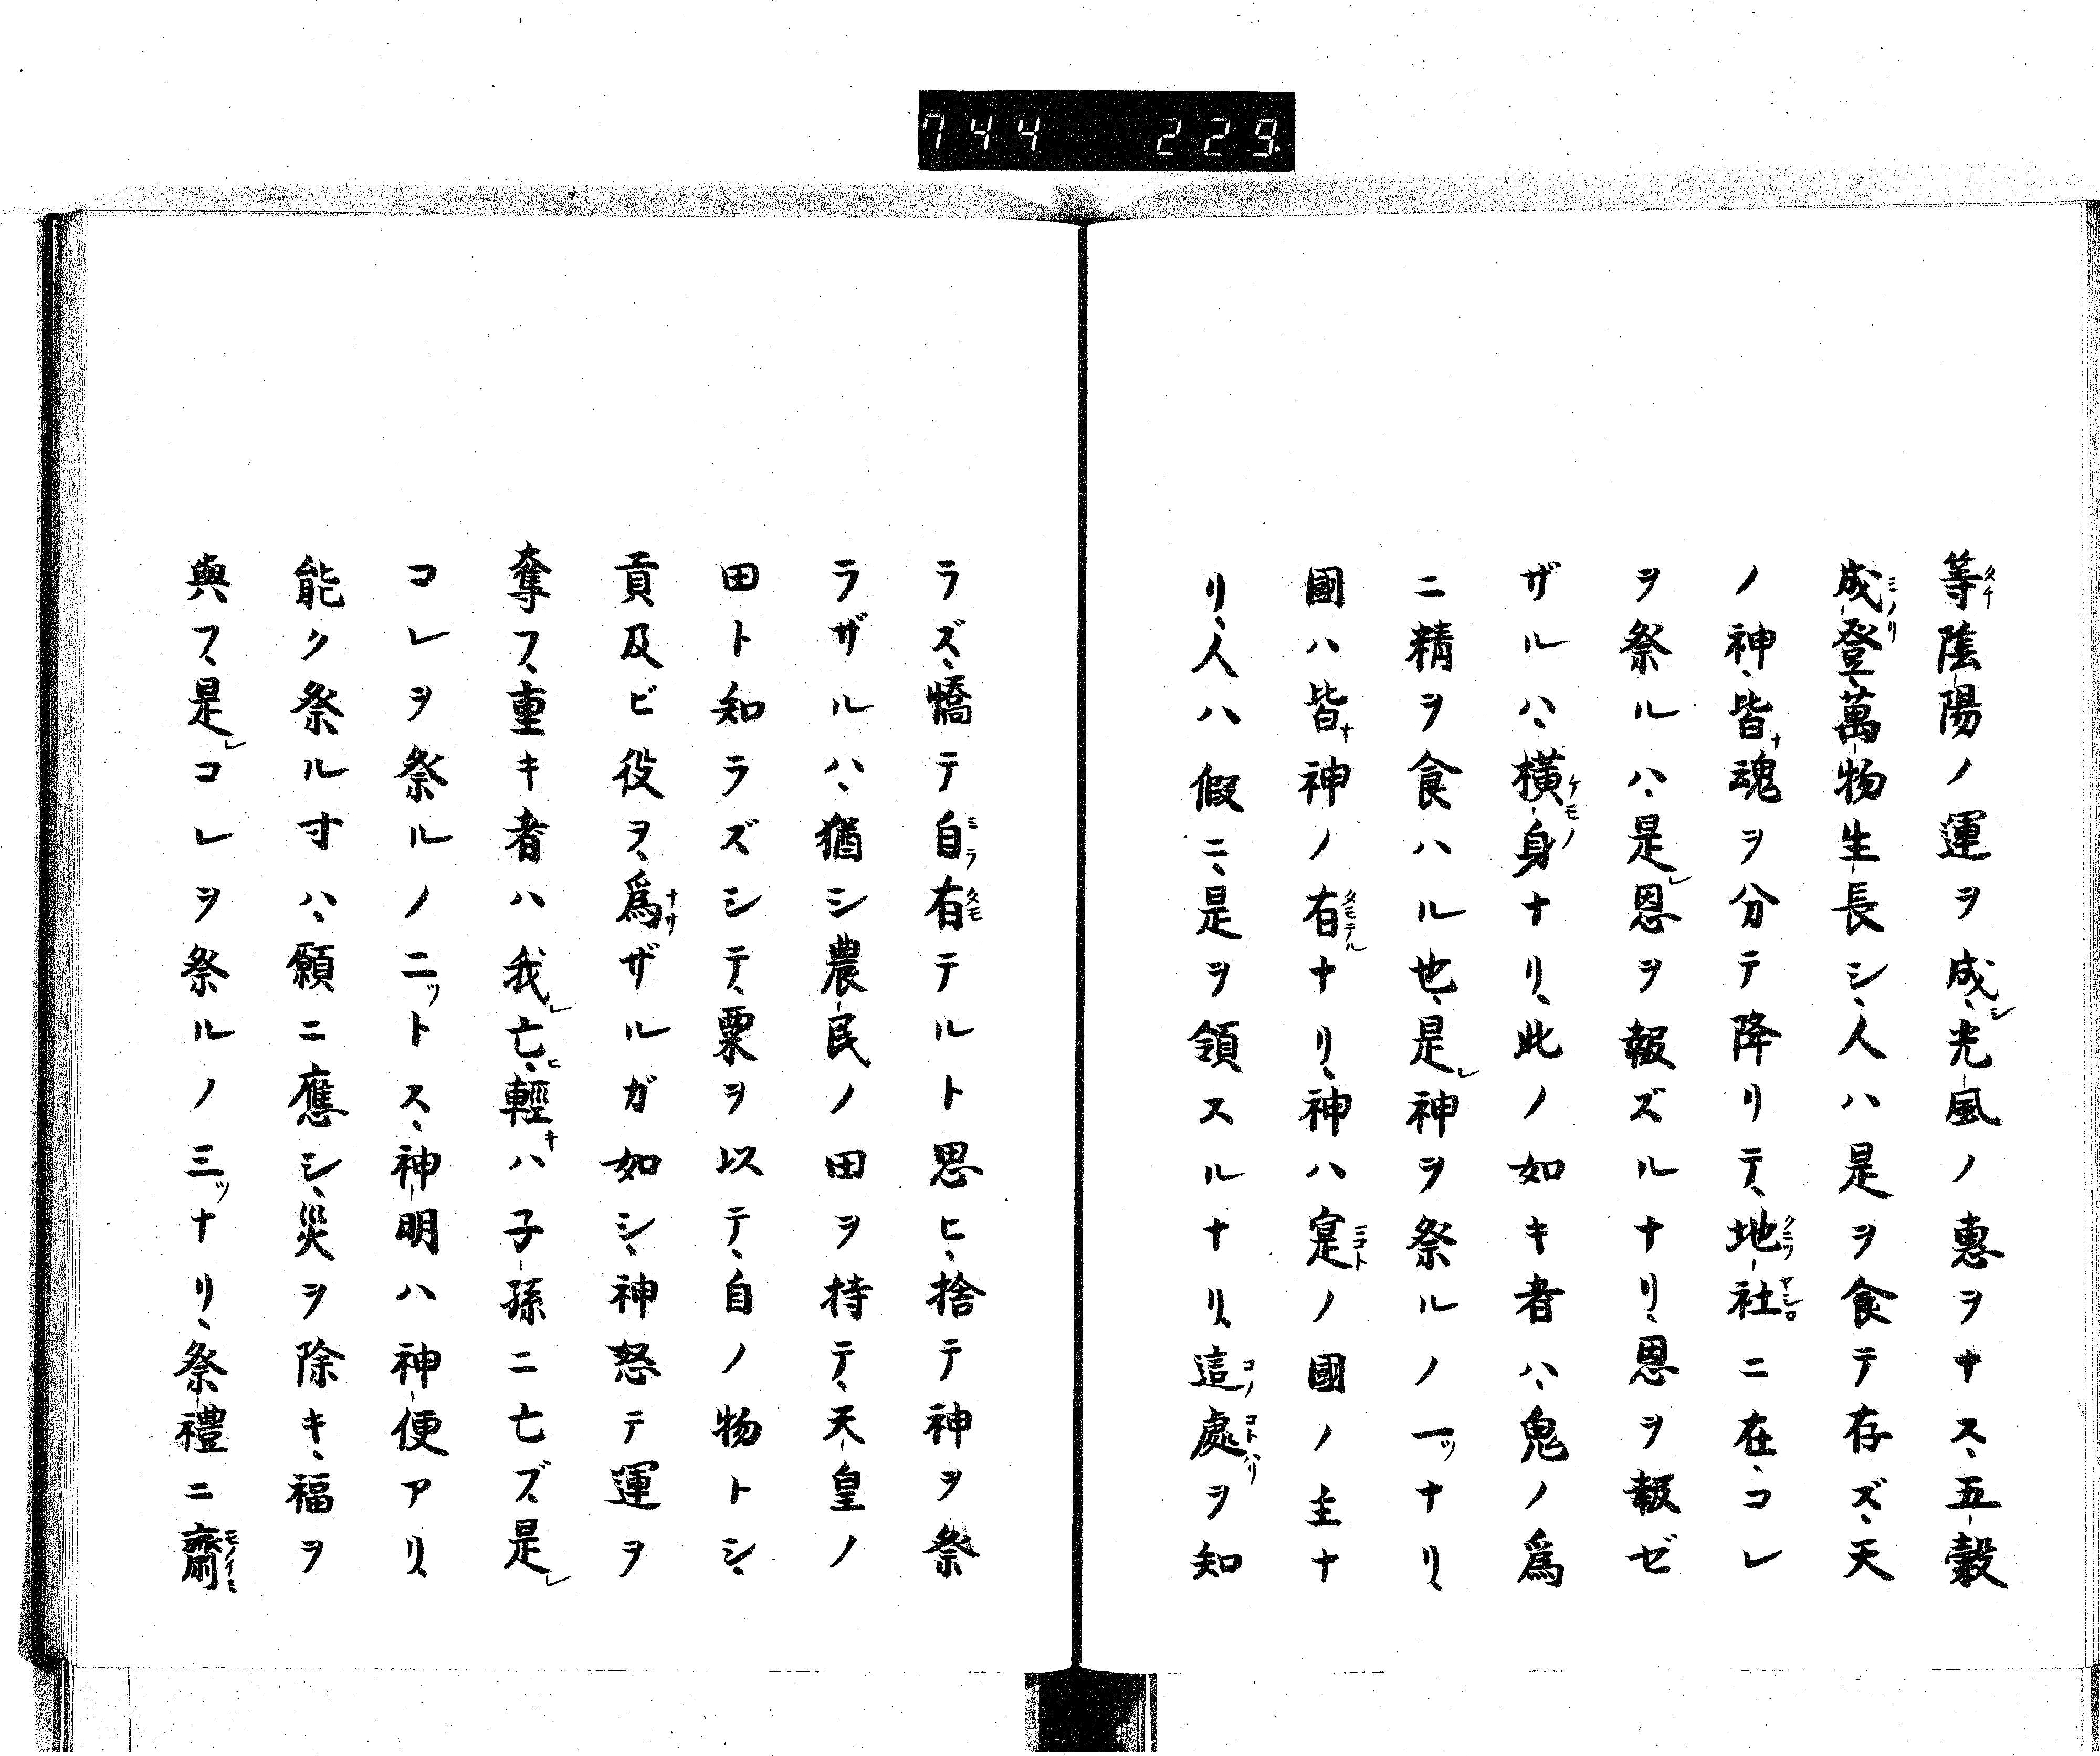 744 229.
等陰陽ノ運ヲ成シ、光風ノ惠ヲナス、五穀
成登、萬物生長シ、人ハ是ヲ食テ存ズ、天
ノ神、皆ナ魂ヲ分テ降リテ、地社ニ在、コレ
ヲ祭ルハ、是レ恩ヲ報ズルナリ、恩ヲ報ゼ
ザルハ、横身ナリ、此ノ如キ者ハ、鬼ノ爲
ニ精ヲ食ハル也、是レ神ヲ祭ルノ一ッナリ、
國ハ皆ナ神ノ有ナリ、神ハ寔ノ國ノ主ナ
リ、人ハ假ニ、是ヲ領スルナリ、這處ヲ知
ラズ、憍テ自有テルト思ヒ、捨テ神ヲ祭
ラザルハ、猶シ農民ノ田ヲ持テ、天皇ノ
田ト知ラズシテ、粟ヲ以テ、自ノ物トシ、
貢及ビ役ヲ、爲ザルガ如シ、神怒テ運ヲ
奪フ、重キ者ハ我レ亡ヒ、輕キハ子孫ニ亡ズ、是レ
コレヲ祭ルノ二ットス、神明ハ神便アリ、
能ク祭ル寸ハ、願ニ應シ、災ヲ除キ、福ヲ
與フ、是レコレヲ祭ルノ三ッナリ、祭禮ニ齋